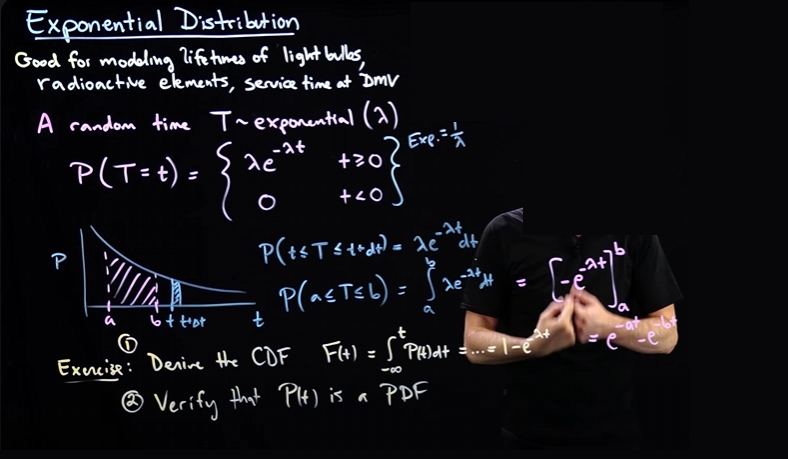 Exponential Distribution
Good for modeling lifetimes of light bulbs,
radioactive elements, service time at DMV
A random time T ~ exponential (λ)
P(T=t) = { λe^{-λt} t≥0
0 t<0 }
Exp. = 1/λ
P(t≤T≤t+dt) = λe^{-λt}dt
P(a≤T≤b) = ∫_a^b λe^{-λt}dt = [-e^{-λt}]_a^b
= e^{-at} - e^{-bt}
P
a b t t+dt t
Exercise: ① Derive the CDF F(t) = ∫_{-∞}^t P(t)dt = ... = 1-e^{-λt}
② Verify that P(t) is a PDF